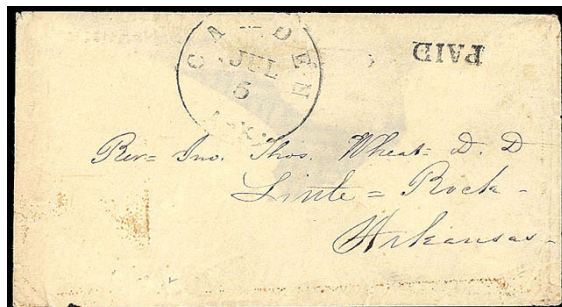 CAMDEN
JUL
5
ARK.
PAID
Rev= Jno. Thos. Wheat= D. D
Little = Rock-
Arkansas-